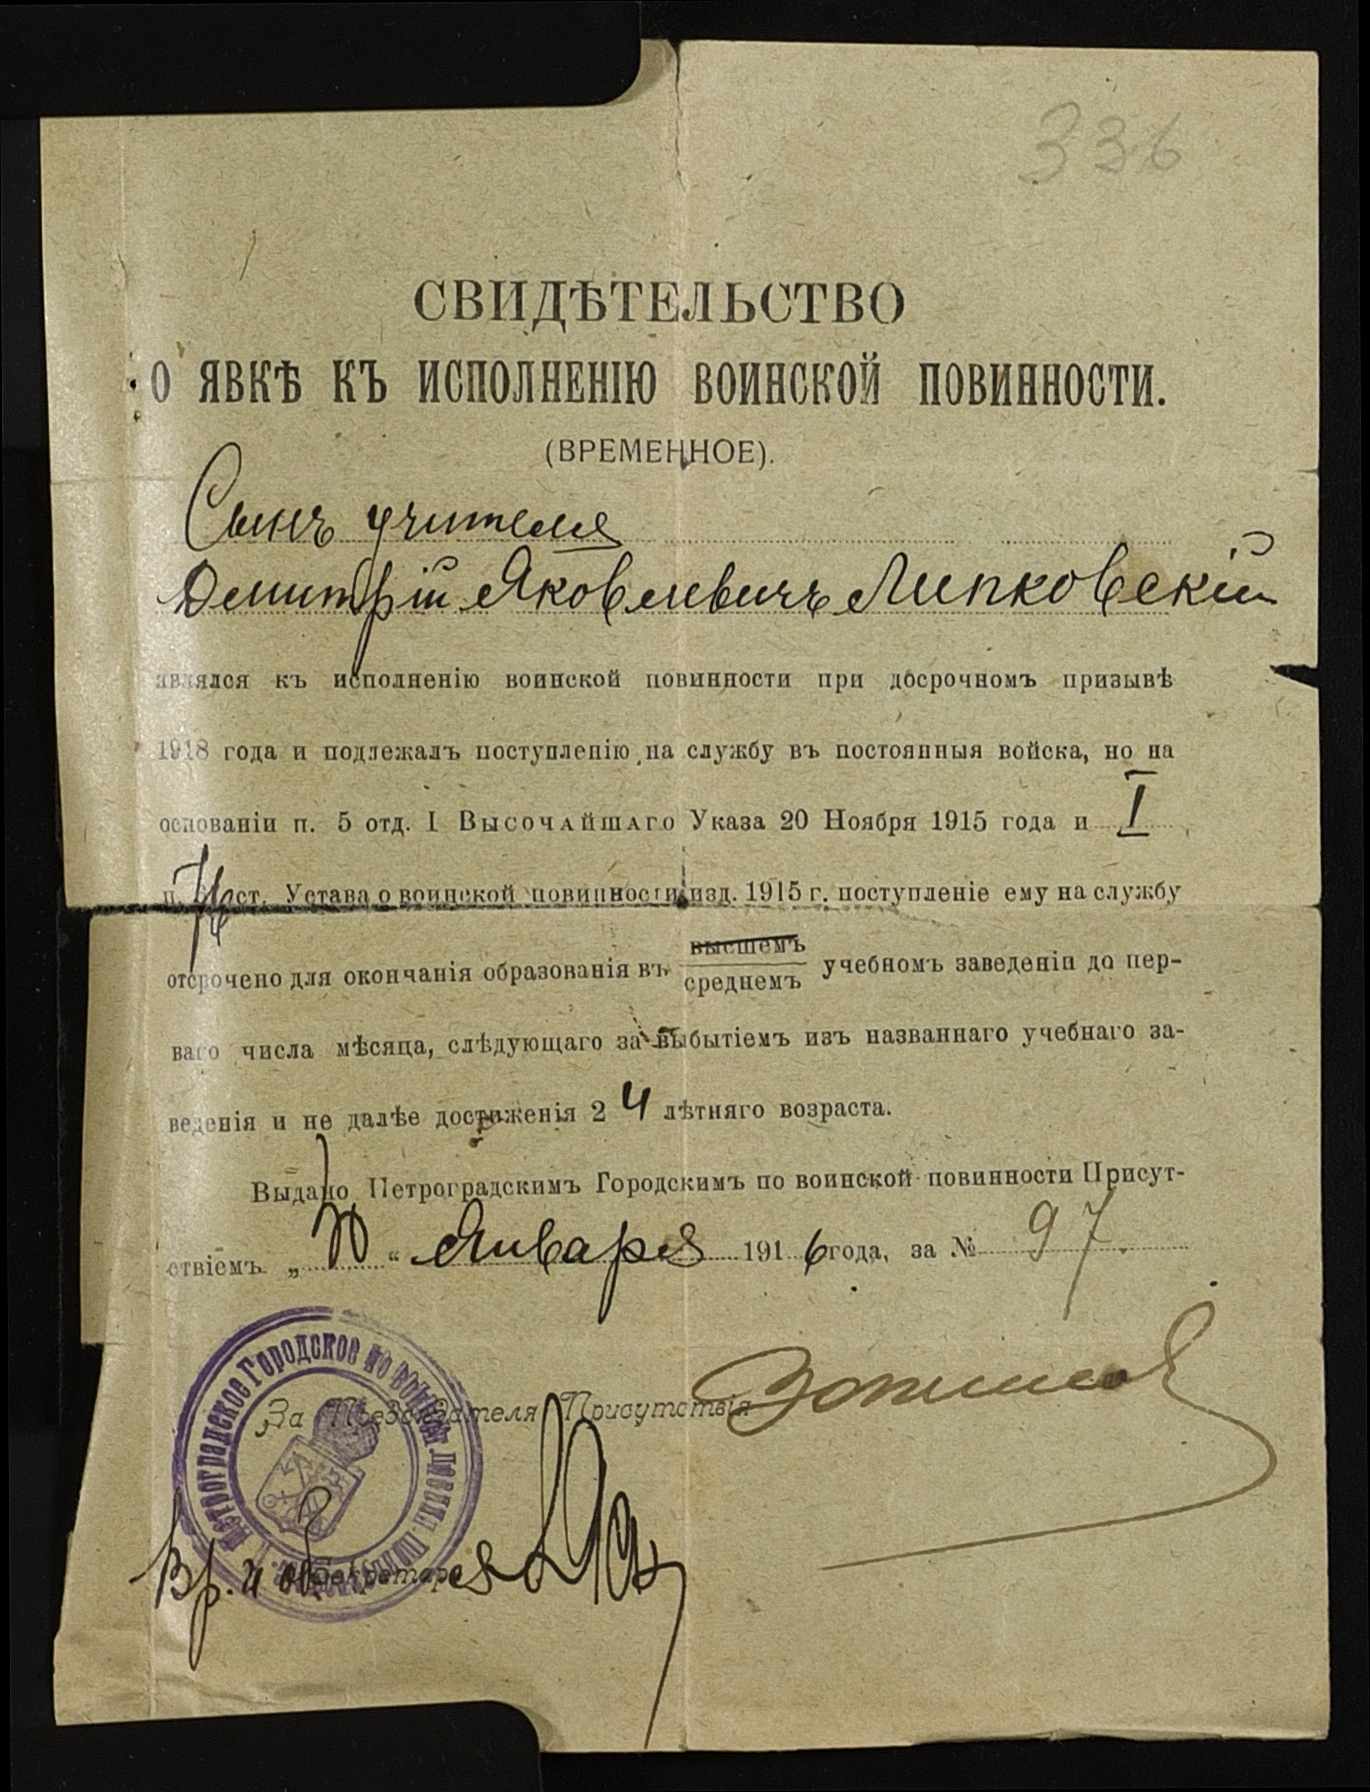 336
СВИДѢТЕЛЬСТВО
О ЯВКѢ КЪ ИСПОЛНЕНІЮ ВОИНСКОЙ ПОВИННОСТИ.
(ВРЕМЕННОЕ).
Сынъ учителя
Дмитрій Яковлевичъ Липковскій
являлся къ исполненію воинской повинности при досрочномъ призывѣ
1918 года и подлежалъ поступленію на службу въ постоянныя войска, но на
основаніи п. 5 отд. I ВЫСОЧАЙШАГО Указа 20 Ноября 1915 года и I
п. 76 ст. Устава о воинской повинности изд. 1915 г. поступленіе ему на службу
отсрочено для окончанія образованія въ высшемъ
среднемъ учебномъ заведеніи до пер-
ваго числа мѣсяца, слѣдующаго за выбытіемъ изъ названнаго учебнаго за-
веденія и не далѣе достиженія 24 лѣтняго возраста.
Выдано Петроградскимъ Городскимъ по воинской повинности Присут-
ствіемъ „ “ Января 1916 года, за № 97.
За Предсѣдателя Присутствія
Вр. и об. Секретаря
Петроградское Городское по воинской повин.